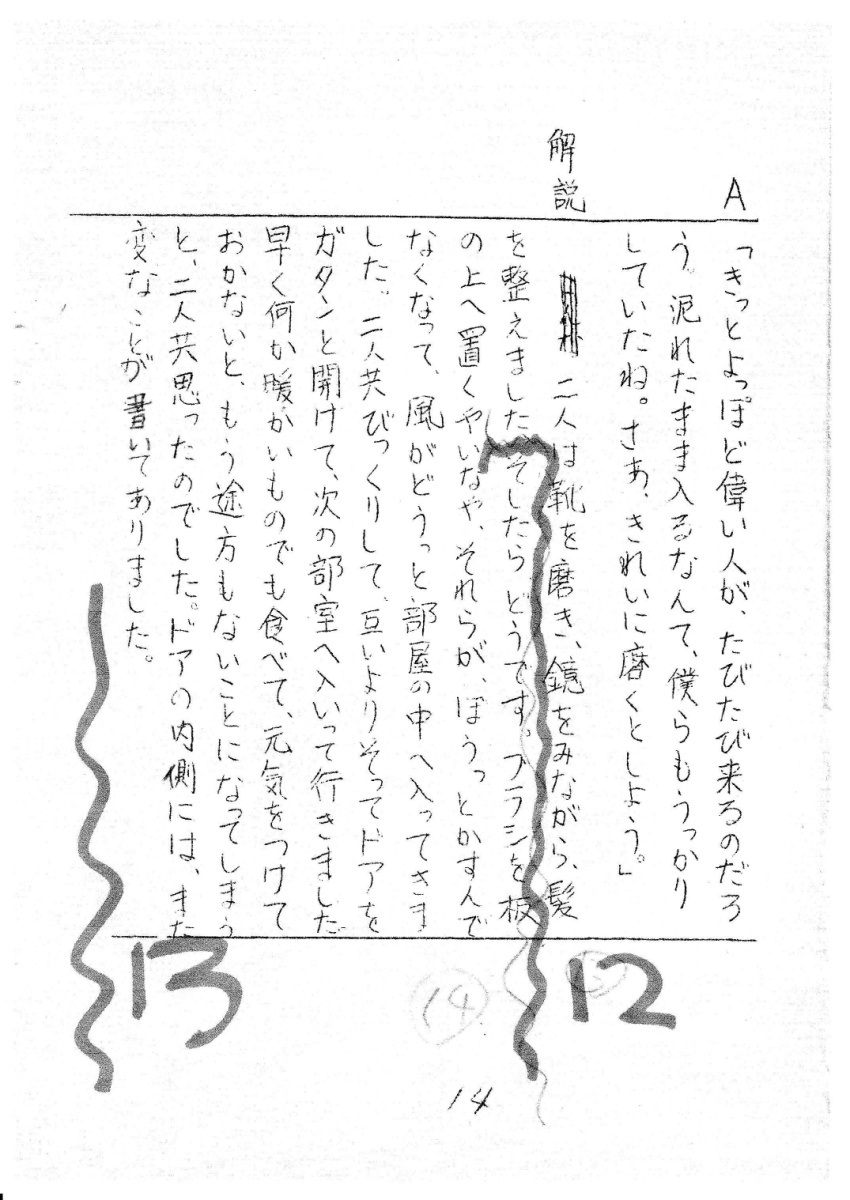 A
「きっとよっぽど偉い人が、たびたび来るのだろ
う。泥れたまま入るなんて、僕らもうっかり
していたね。さあ、きれいに磨くとしよう。」
解説
二人は靴を磨き、鏡をみながら、髪
を整えました。そしたらどうです。ブラシを板
の上へ置くやいなや、それらが、ぼうっとかすんで
なくなって、風がどうっと部屋の中へ入ってきま
した。二人共びっくりして、互いよりそってドアを
ガタンと開けて、次の部室へ入いって行きました
早く何か暖かいものでも食べて、元気をつけて
おかないと、もう途方もないことになってしまう
と、二人共思ったのでした。ドアの内側には、また
変なことが書いてありました。
12
13
14
14